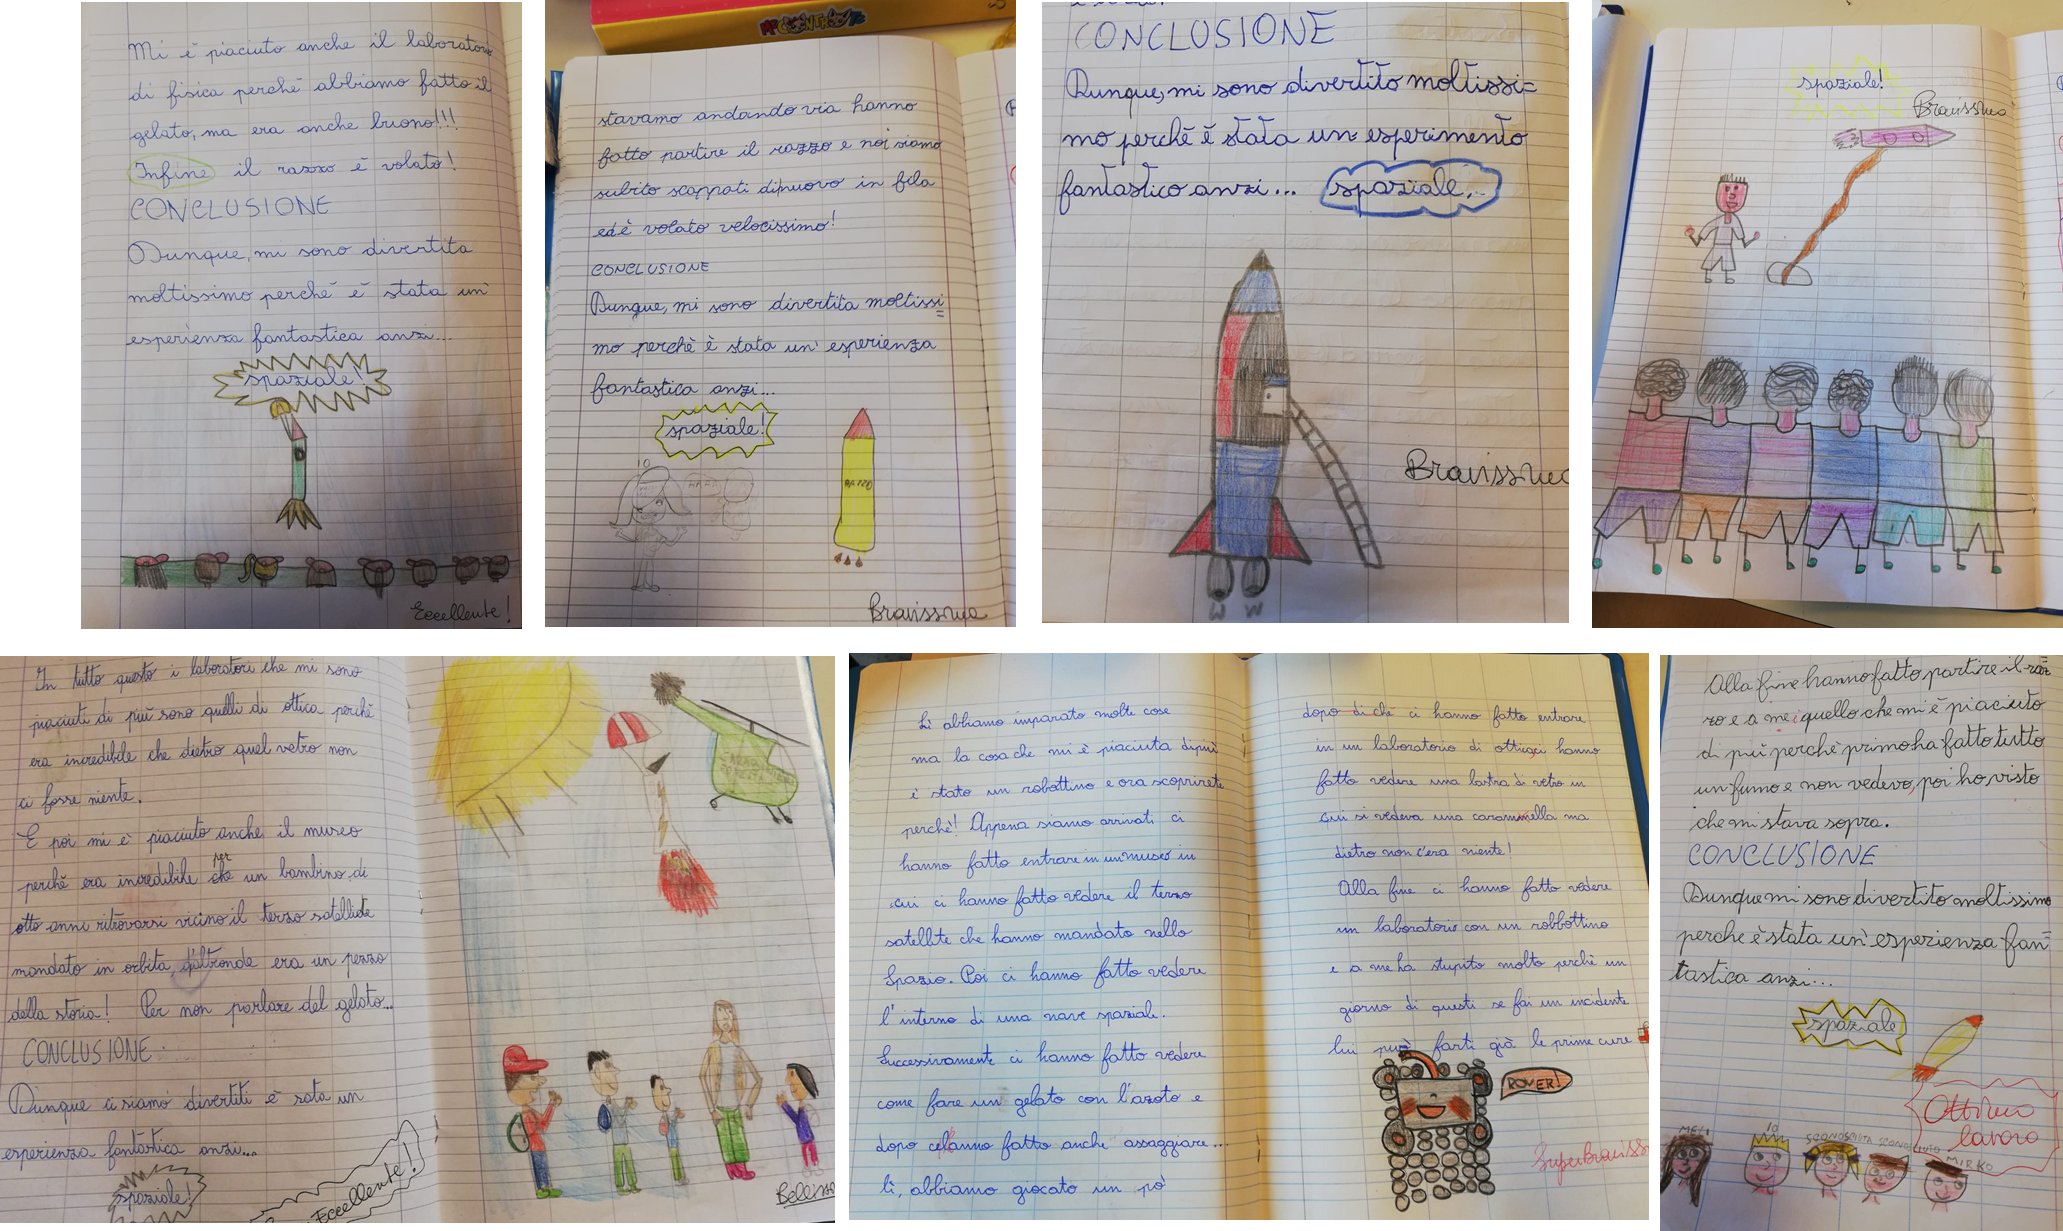 Mi è piaciuto anche il laboratorio
di fisica perché abbiamo fatto il
gelato, ma era anche buono!!!
Infine il razzo è volato!
CONCLUSIONE
Dunque, mi sono divertita
moltissimo perché è stata un'
esperienza fantastica anzi...
spaziale!
Eccellente!
stavamo andando via hanno
fatto partire il razzo e noi siamo
subito scappati dinuovo in fila
ed è volato velocissimo!
CONCLUSIONE
Dunque, mi sono divertita moltissi
mo perchè è stata un' esperienza
fantastica anzi...
spaziale!
IO
RAZZO
Bravissima
CONCLUSIONE
Dunque, mi sono divertito moltissi=
mo perchè è stata un esperimento
fantastico anzi... spaziale..
Bravissimo
spaziale!
Bravissimo
In tutto questo i laboratori che mi sono
piaciuti di più sono quelli di ottica perchè
era incredibile che dietro quel vetro non
ci fosse niente.
E poi mi è piaciuto anche il museo
perchè era incredibile che per un bambino di
otto anni ritrovarsi vicino il terzo satellite
mandato in orbita, d'altronde era un pezzo
della storia! Per non parlare del gelato...
CONCLUSIONE
Dunque ci siamo divertiti è sata un
esperienza fantastica anzi...
spaziale!
Eccellente!
Lì abbiamo imparato molte cose
ma la cosa che mi è piaciuta dipiù
è stato un robottino e ora scoprirete
perchè! Appena siamo arrivati ci
hanno fatto entrare in un museo in
cui ci hanno fatto vedere il terzo
satellite che hanno mandato nello
Spazio. Poi ci hanno fatto vedere
l'interno di una nave spaziale.
Successivamente ci hanno fatto vedere
come fare un gelato con l'azoto e
dopo celanno fatto anche assaggiare...
lì, abbiamo giocato un pò
dopo di chè ci hanno fatto entrare
in un laboratorio di ottica, ci hanno
fatto vedere una lastra di vetro in
cui si vedeva una caramella ma
dietro non c'era niente!
Alla fine ci hanno fatto vedere
un laboratorio con un robbottino
e a me ha stupito molto perchè un
giorno di questi se fai un incidente
lui può farti già le prime cure
ROVER!
Alla fine hanno fatto partire il raz=
zo e a me quello che mi è piaciuto
di più perchè primo ha fatto tutto
un fumo e non vedevo, poi ho visto
che mi stava sopra.
CONCLUSIONE
Dunque mi sono divertito moltissimo
perche è stata un' esperienza fan=
tastica anzi...
spaziale
Ottimo
lavoro
MELI
IO
MIRKO